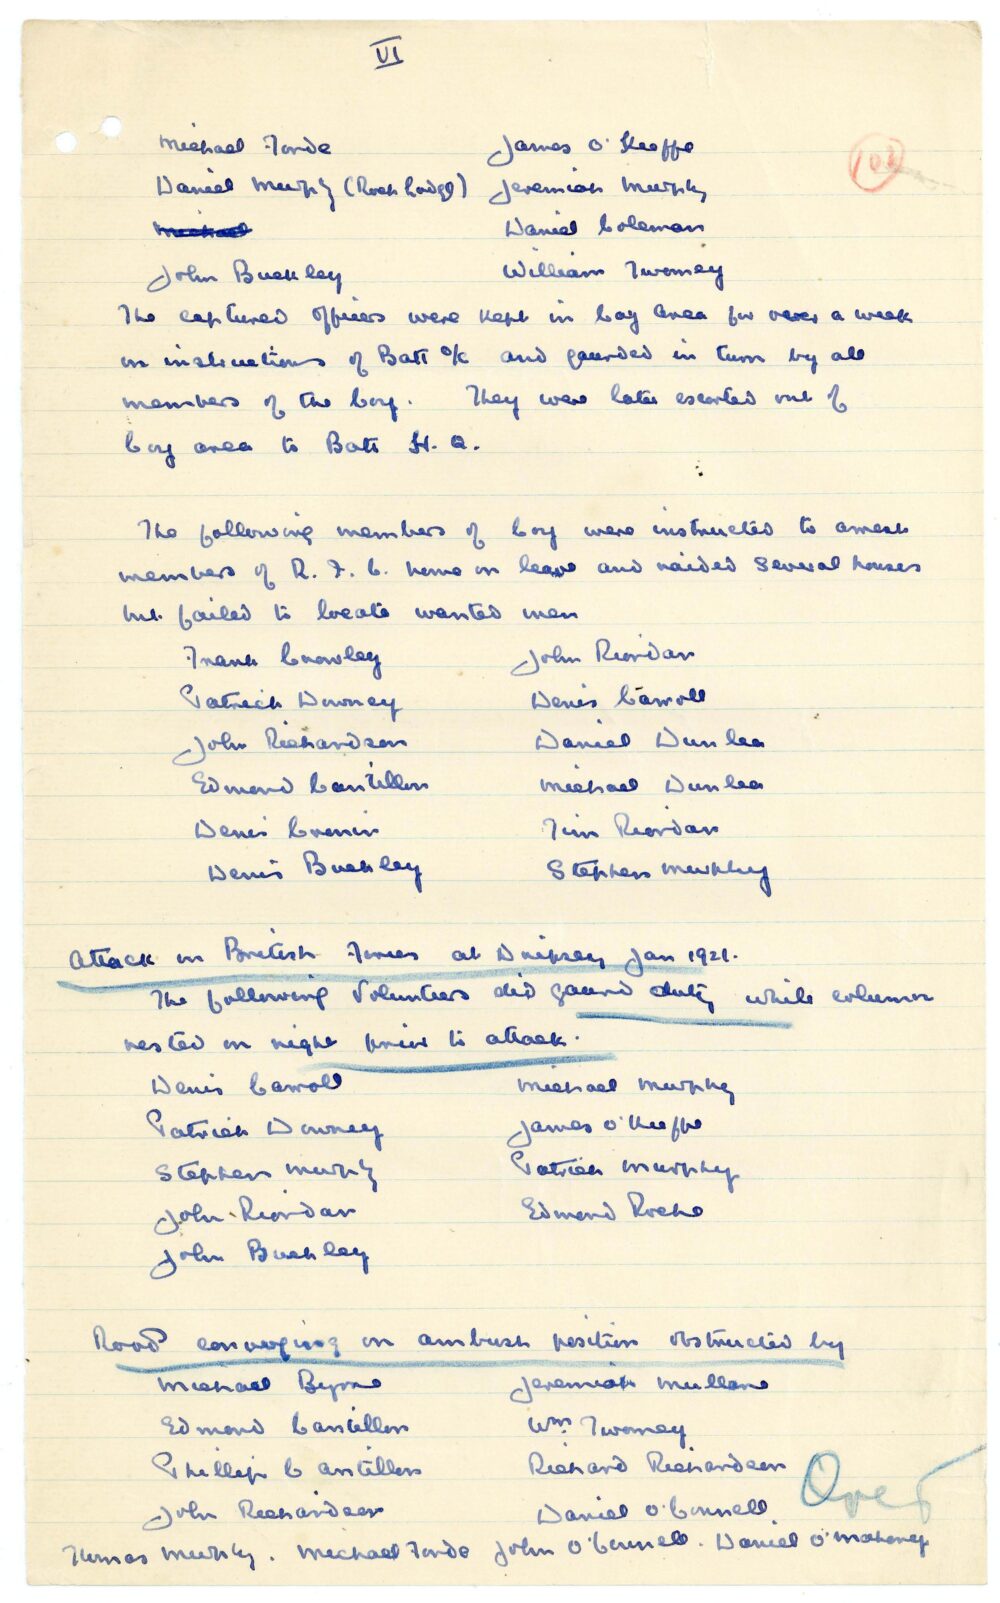 VI
102
Michael Forde James O'Keeffe
Daniel Murphy (Rock Lodge) Jeremiah Murphy
Michael Daniel Coleman
John Buckley William Twomey
The captured officers were kept in Coy area for over a week
on instructions of Batt O/C and gaurded in turn by all
members of the Coy. They were later escorted out of
Coy area to Batt H.Q.
The following members of Coy were instructed to arrest
members of R.I.C. home on leave and raided several houses
but failed to locate wanted men
Frank Crowley John Riordan
Patrick Downey Denis Carroll
John Richardson Daniel Dunlea
Edmond Cantillon Michael Dunlea
Denis Cronin Tim Riordan
Denis Buckley Stephen Murphy
Attack on British Forces at Dripsey Jan 1921.
The following Volunteers did gaurd duty while column
rested on night prior to attack.
Denis Carroll Michael Murphy
Patrick Downey James O'Keeffe
Stephen Murphy Patrick Murphy
John Riordan Edmond Roche
John Buckley
Road converging on ambush position obstructed by
Michael Byrne Jeremiah Mullane
Edmond Cantillon Wm Twomey
Phillip Cantillon Richard Richardson
John Richardson Daniel O'Connell
Over
Thomas Murphy. Michael Forde John O'Connell. Daniel O'Mahony